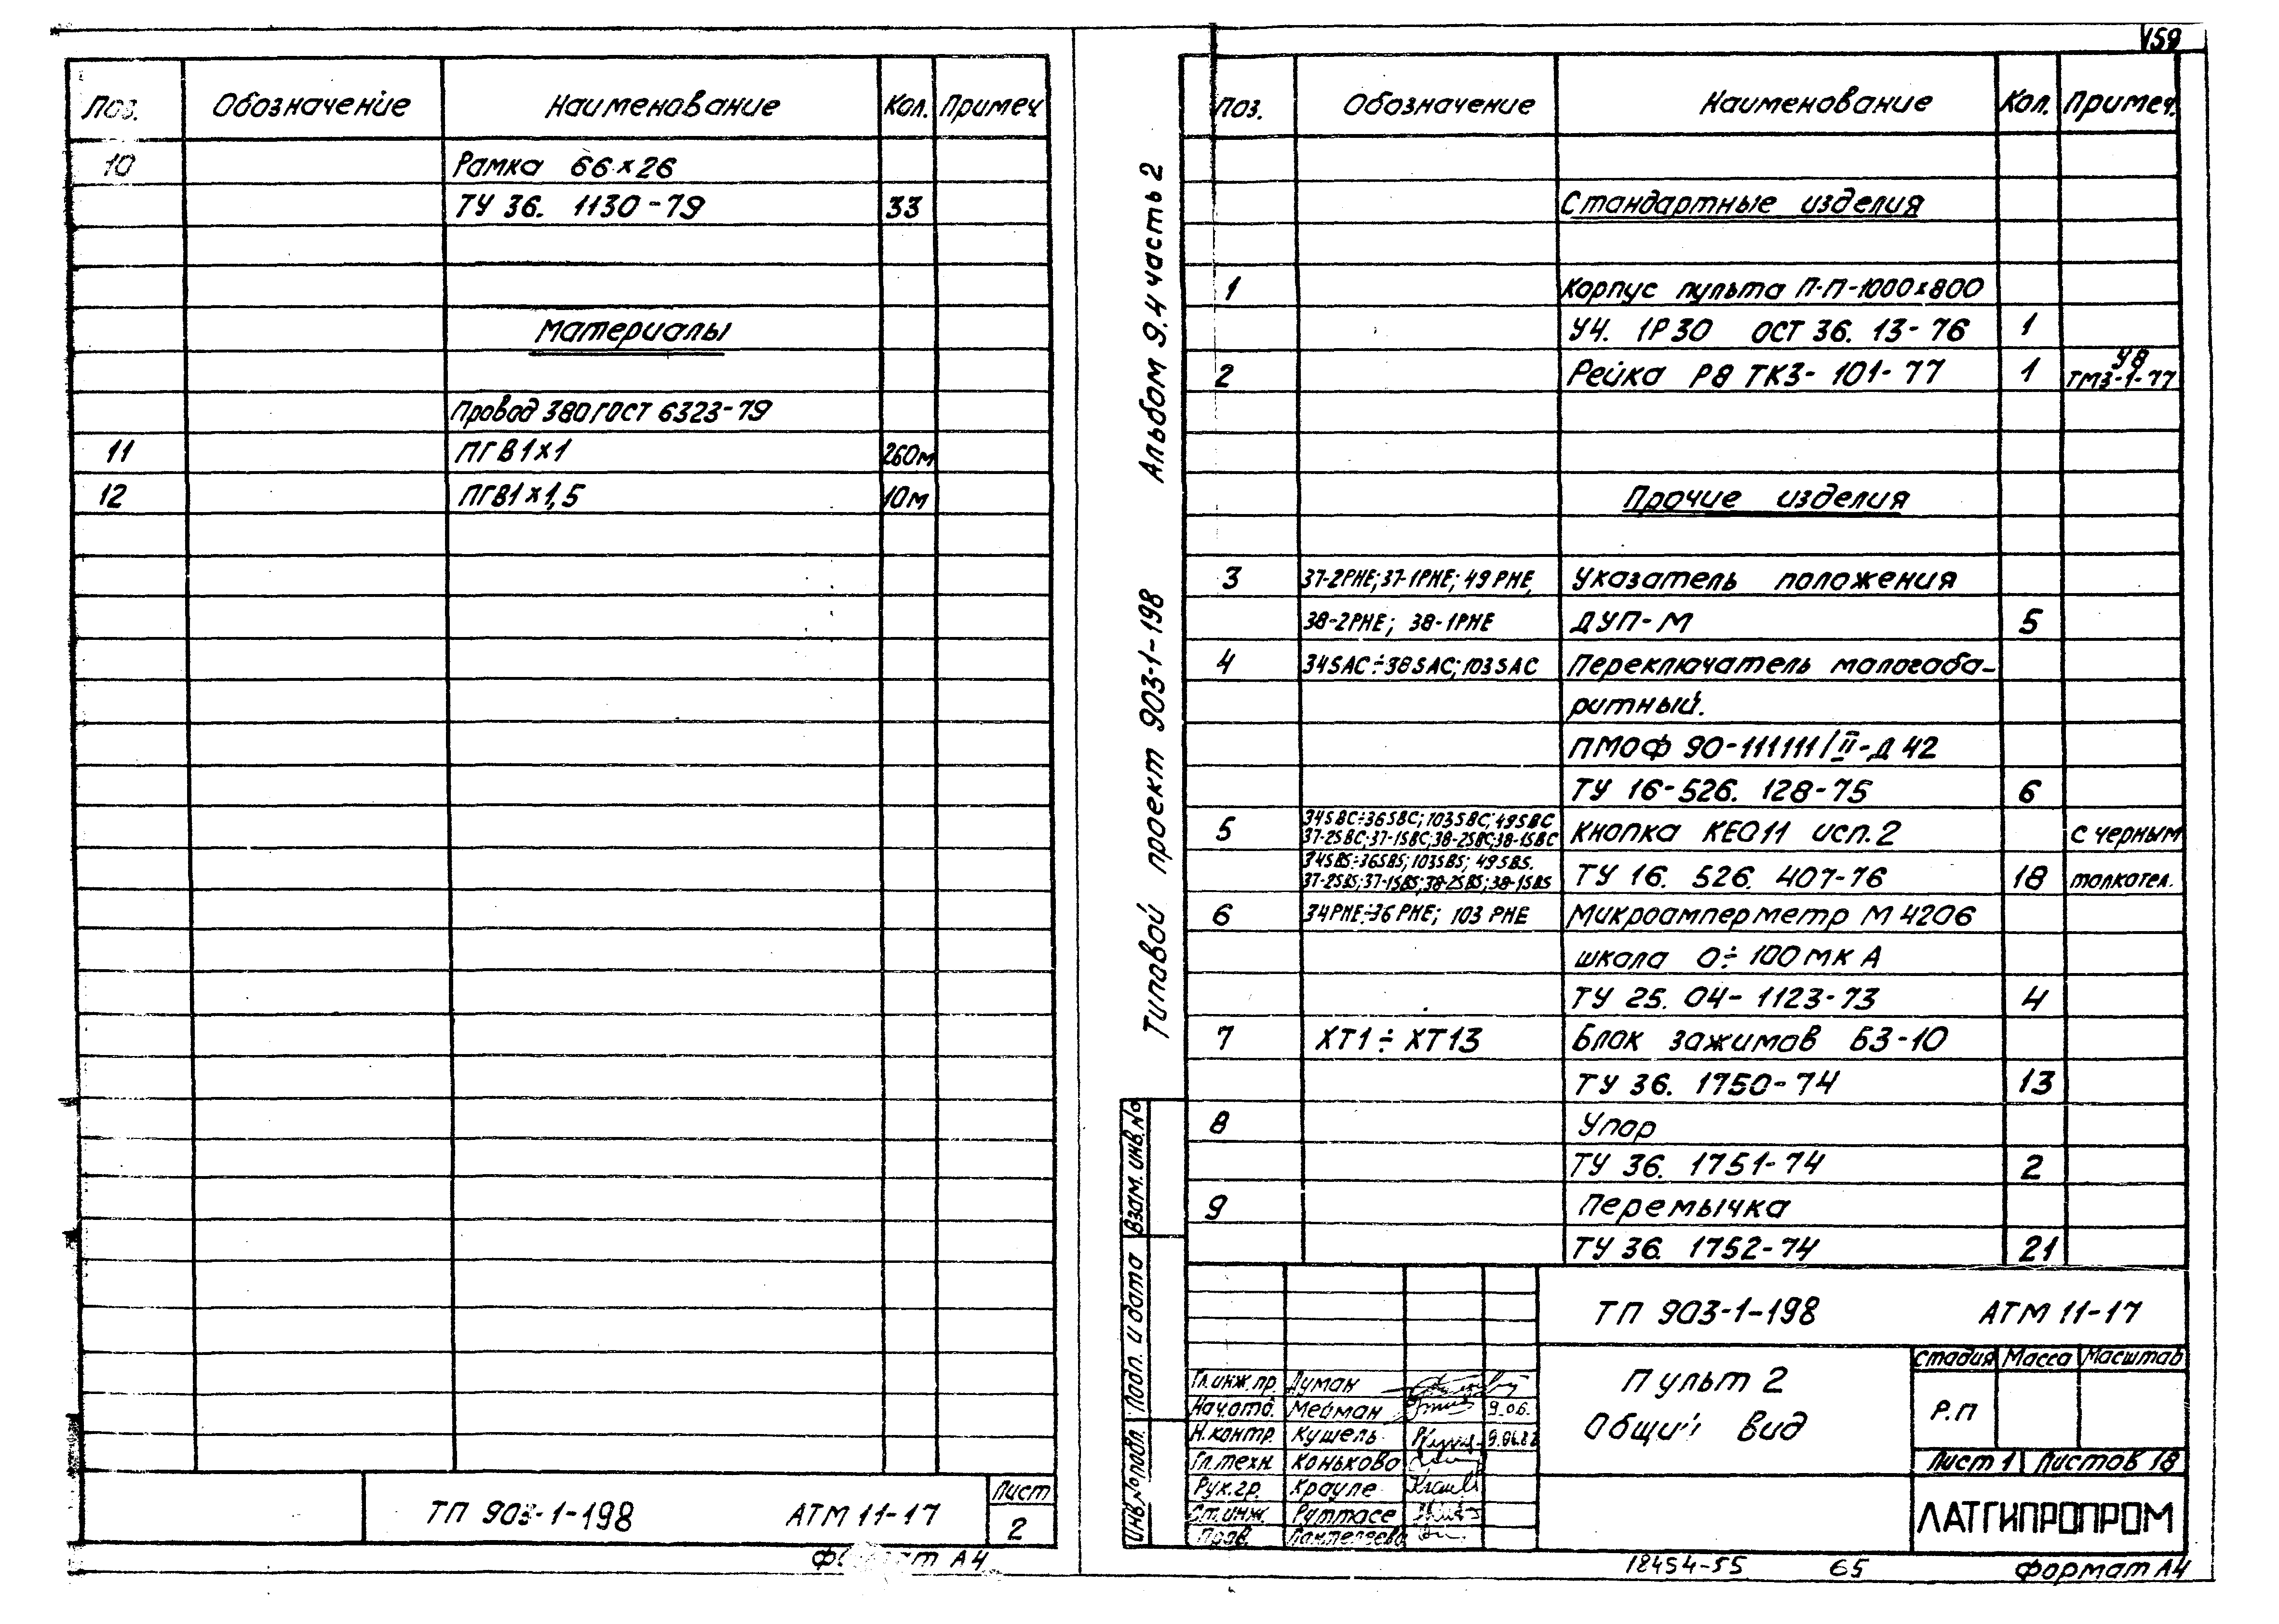 Поз. Обозначение Наименование Кол. Примеч
10 Рамка 66×26
ТУ 36. 1130-79 33
Материалы
Провод 380 ГОСТ 6323-79
11 ПГВ1×1 260м
12 ПГВ1×1,5 10м
ТП 903-1-198 АТМ 11-17
Лист
2
Формат А4
Альбом 9.4 часть 2
Типовой проект 903-1-198
Взам. инв. №
Подп. и дата
Инв. № подл.
159
Поз. Обозначение Наименование Кол. Примеч.
Стандартные изделия
1 Корпус пульта П-П-1000×800
У4. 1Р30 ОСТ 36. 13-76 1
2 Рейка Р8 ТК3-101-77 1 У8
ТМ3-1-77
Прочие изделия
3 37-2PHE; 37-1PHE; 49 PHE, Указатель положения
38-2PHE; 38-1PHE ДУП-М 5
4 34SAC÷38SAC; 103SAC Переключатель малогаба-
ритный.
ПМОФ 90-111111/II-Д 42
ТУ 16-526. 128-75 6
34SBC÷36SBC; 103SBC; 49SBC
5 37-2SBC; 37-1SBC; 38-2SBC; 38-1SBC Кнопка КЕ011 исп. 2 с черным
34SBS÷36SBS; 103SBS; 49SBS.
37-2SBS; 37-1SBS; 38-2SBS; 38-1SBS ТУ 16. 526. 407-76 18 толкател.
6 34PHE÷36PHE; 103 PHE Микроамперметр М 4206
шкала 0÷100 мк А
ТУ 25. 04-1123-73 4
7 XT1÷XT13 Блок зажимов БЗ-10
ТУ 36. 1750-74 13
8 Упор
ТУ 36. 1751-74 2
9 Перемычка
ТУ 36. 1752-74 21
ТП 903-1-198 АТМ 11-17
Пульт 2
Общий вид
Стадия Масса Масштаб
Р.П
Лист 1 Листов 18
ЛАТГИПРОПРОМ
Гл.инж.пр. Думан
Нач.отд. Мейман 9.06.
Н.контр. Кушель 9.06.82
Гл.техн. Конькова
Рук.гр. Крауле
Ст.инж. Руттасе
Пров. Пантелеева
18454-55 65 Формат А4